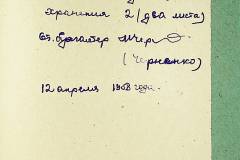 хранения 2 (два листа)
Ст. бухгалтер
(Черненко)
12 апреля 1968 года.